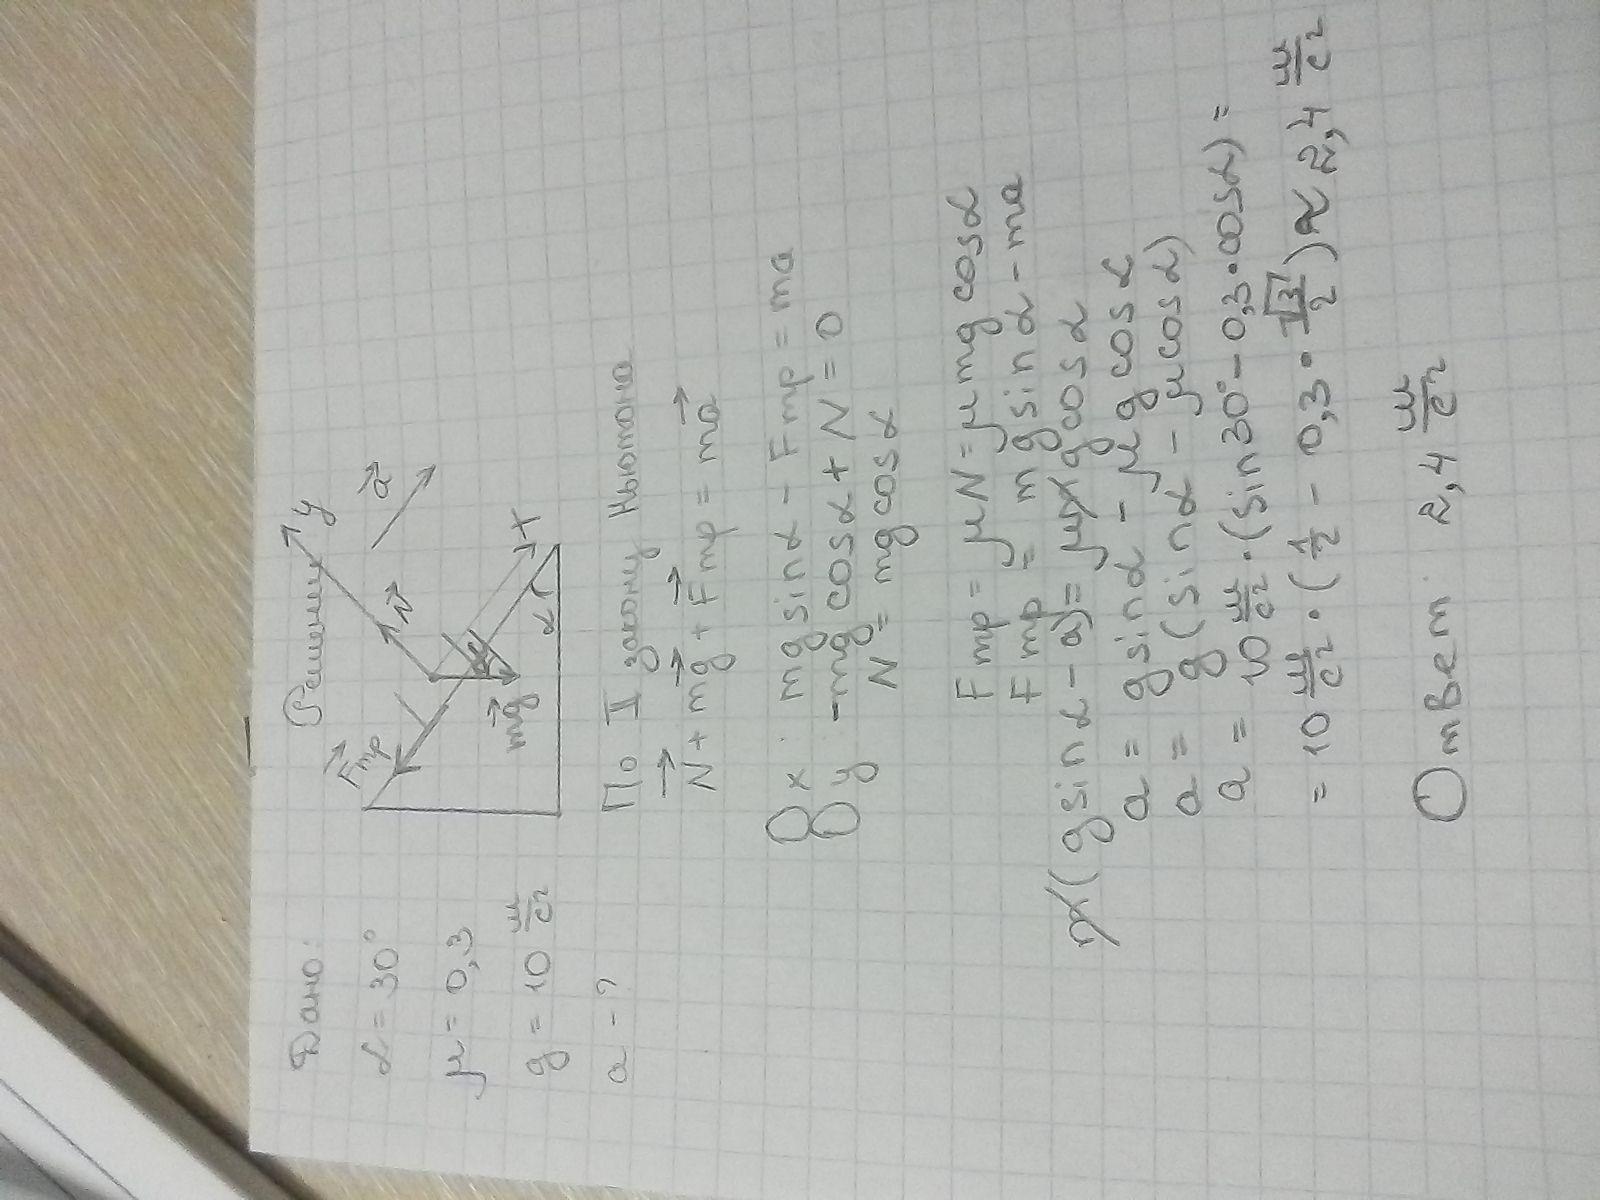 Дано:
α = 30°
μ = 0,3
g = 10 м/с²
a - ?
Решение
y
a
N
Fтр
mg
x
α
По II закону Ньютона
N + mg + Fтр = ma
Ox: mg sin α - Fтр = ma
Oy: -mg cos α + N = 0
N = mg cos α
Fтр = μN = μ mg cos α
Fтр = mg sin α - ma
m(g sin α - a) = μmg cos α
a = g sin α - μ g cos α
a = g (sin α - μ cos α)
a = 10 м/с² · (sin 30° - 0,3 · cos α) =
= 10 м/с² · (1/2 - 0,3 · √3/2) ≈ 2,4 м/с²
Ответ: 2,4 м/с²